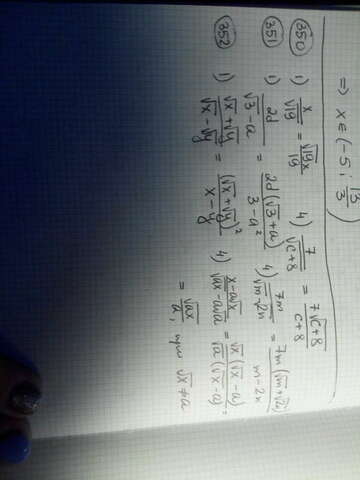 ⇒ x ∈ (-5; 13/3)
350 1) x/√19 = √19x/19 4) 7/√(c+8) = 7√(c+8)/(c+8)
351 1) 2d/(√3-a) = 2d(√3+a)/(3-a²) 4) 7m/(√m-√2n) = 7m(√m+√2n)/(m-2n)
352 1) (√x+√y)/(√x-√y) = (√x+√y)²/(x-y) 4) (x-a√x)/(√ax-a√a) = √x(√x-a)/(√a(√x-a)) =
= √ax/a, при √x≠a